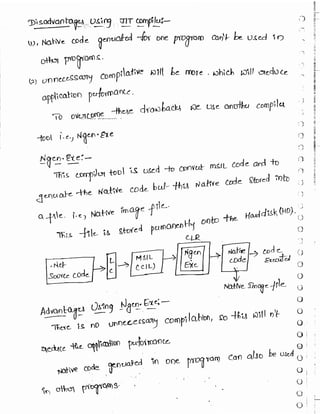 Disadvantages using JIT compiler:-
(1), Native code genuated for one program can't be used in
other programs.
(2) unneccessary compilative will be more. which will reduce
application performance.
To overcome these drawbacks we use another compiler
tool i.e., Ngen.Exe
Ngen.Exe:-
This compiler tool is used to convert MSIL code and to
genuate the Native code but this Native code stored into
a file. i.e, Native image file.
This file is stored permanently onto the Harddisk(HD).
CLR
.Net Source code
L C
MSIL (CIL)
Ngen Exe
Native code
code Executed
Native Image file
Advantages Using Ngen.Exe:-
There is no unneccessary compilation, so this will n't
reduce the application performance
Native code genuated in one program can also be used
in other programs.